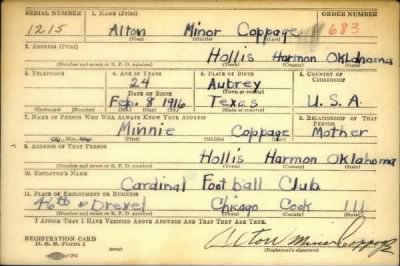 SERIAL NUMBER 1. NAME (Print) ORDER NUMBER
1215 Alton Minor Coppage 683
(First) (Middle) (Last)
2. ADDRESS (Print)
Hollis Harmon Oklahoma
(Number and street or R. F. D. number) (Town) (County) (State)
3. TELEPHONE 4. AGE IN YEARS 5. PLACE OF BIRTH 6. COUNTRY OF CITIZENSHIP
24 Aubrey
DATE OF BIRTH (Town or county)
Feb. 8 1916 Texas U.S.A.
(Exchange) (Number) (Mo.) (Day) (Yr.) (State or country)
7. NAME OF PERSON WHO WILL ALWAYS KNOW YOUR ADDRESS 8. RELATIONSHIP OF THAT PERSON
Minnie Coppage Mother
(Mr., Mrs., Miss) (First) (Middle) (Last)
9. ADDRESS OF THAT PERSON
Hollis Harmon Oklahoma
(Number and street or R. F. D. number) (Town) (County) (State)
10. EMPLOYER'S NAME
Cardinal Football Club
11. PLACE OF EMPLOYMENT OR BUSINESS
46th & Drexel Chicago Cook Ill
(Number and street or R. F. D. number) (Town) (County) (State)
I AFFIRM THAT I HAVE VERIFIED ABOVE ANSWERS AND THAT THEY ARE TRUE.
REGISTRATION CARD
D. S. S. Form 1 Alton Minor Coppage
(Registrant's signature)